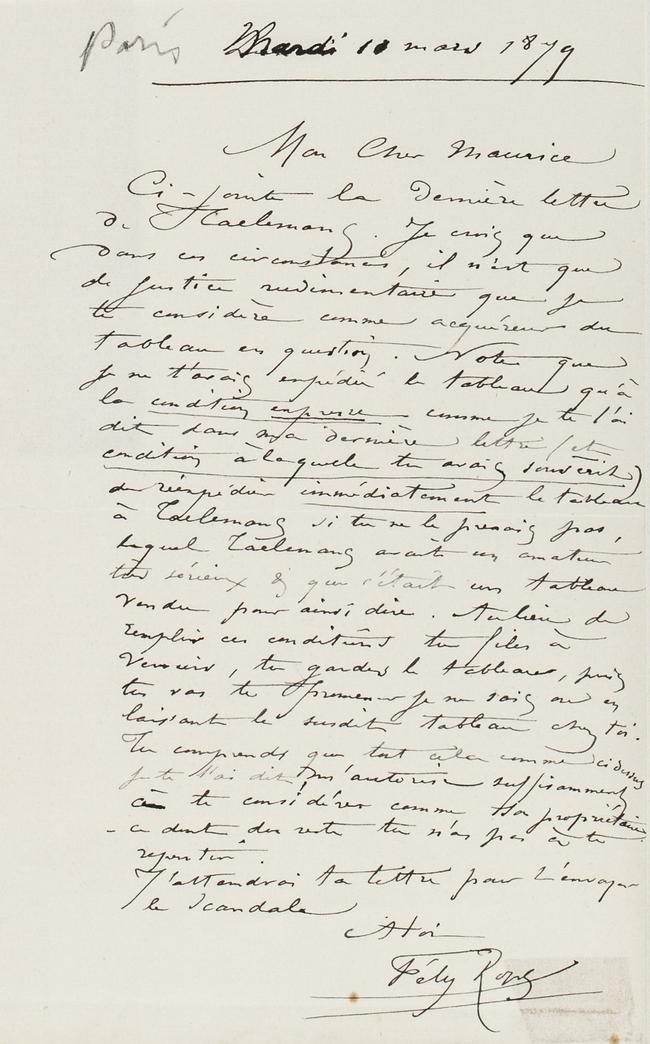 Paris
Mardi 18 mars 1879
Mon Cher Maurice
Ci-jointe la Dernière lettre
de Taelemans. Je crois que
dans ces circonstances, il n'est que
de justice rudimentaire que je
te considère comme acquéreur du
tableau en question. Note que
je ne t'avais expédié le tableau qu'à
la condition expresse comme je te l'ai
dit dans ma dernière lettre (et
condition à laquelle tu avais souscrit)
de réexpédier immédiatement le tableau
à Taelemans si tu ne le prenais pas,
lequel Taelemans avait un amateur
très sérieux & que c'était un tableau
vendu pour ainsi dire. Au lieu de
remplir ces conditions tu files à
, tu gardes le tableau, puis
tu vas te promener je ne sais où en
laissant le susdit tableau chez toi.
Tu comprends que tout cela comme ci dessus
je te l'ai dit, m'autorise suffisamment
à te considérer comme son propriétaire
- ce dont du reste tu n'as pas à te
repentir.
J'attendrai ta lettre pour t'envoyer
le Scandale
A toi
Fély Rops